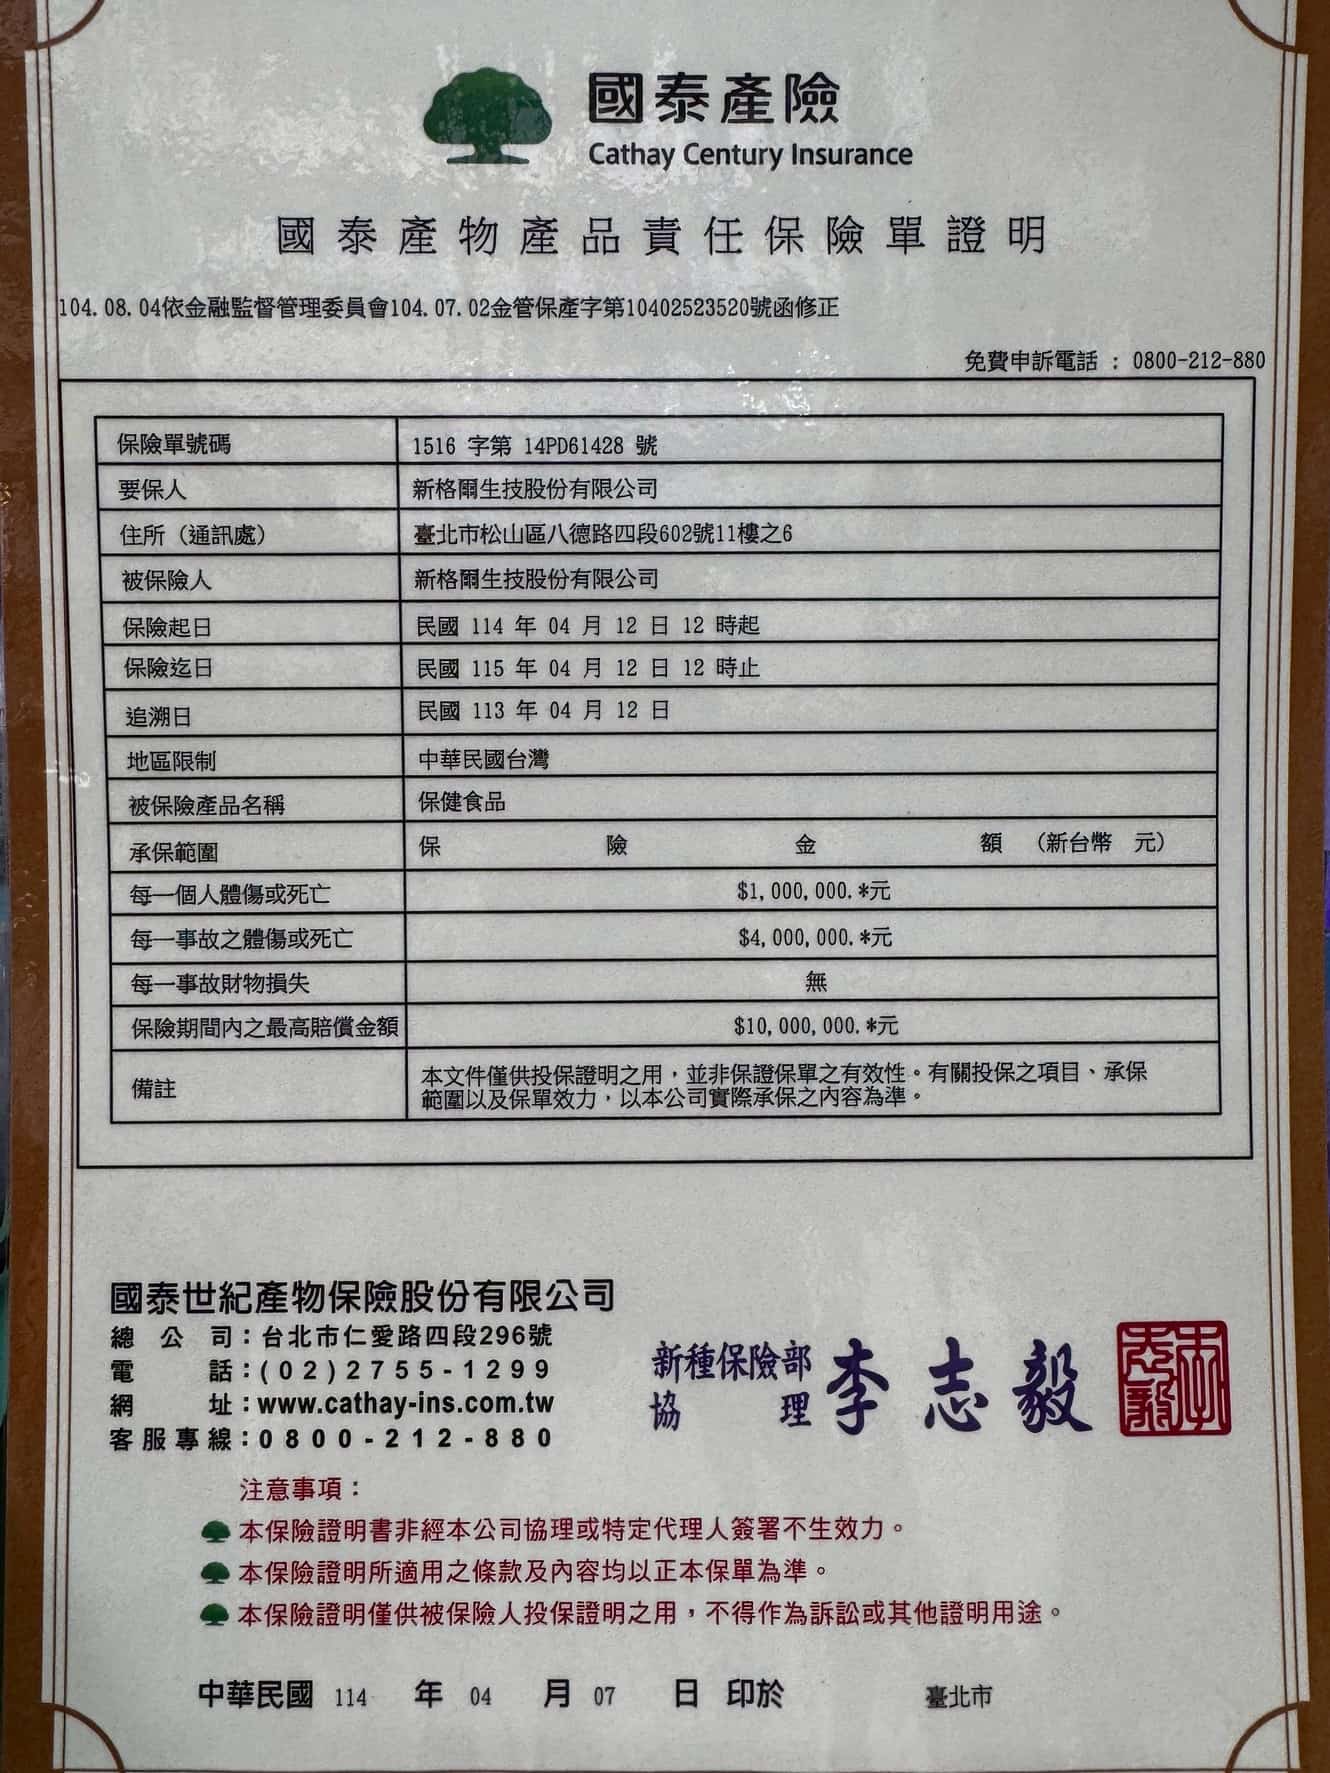 國泰產險
Cathay Century Insurance
國泰產物產品責任保險單證明
104.08.04依金融監督管理委員會104.07.02金管保產字第10402523520號函修正
免費申訴電話 : 0800-212-880
保險單號碼 1516 字第 14PD61428 號
要保人 新格爾生技股份有限公司
住所（通訊處） 臺北市松山區八德路四段602號11樓之6
被保險人 新格爾生技股份有限公司
保險起日 民國 114 年 04 月 12 日 12 時起
保險迄日 民國 115 年 04 月 12 日 12 時止
追溯日 民國 113 年 04 月 12 日
地區限制 中華民國台灣
被保險產品名稱 保健食品
承保範圍 保 險 金 額 （新台幣 元）
每一個人體傷或死亡 $1,000,000.*元
每一事故之體傷或死亡 $4,000,000.*元
每一事故財物損失 無
保險期間內之最高賠償金額 $10,000,000.*元
備註 本文件僅供投保證明之用，並非保證保單之有效性。有關投保之項目、承保
範圍以及保單效力，以本公司實際承保之內容為準。
國泰世紀產物保險股份有限公司
總公司：台北市仁愛路四段296號
電話：(02)2755-1299
網址：www.cathay-ins.com.tw
客服專線：0800-212-880
新種保險部
協理 李志毅
李志毅
注意事項：
本保險證明書非經本公司協理或特定代理人簽署不生效力。
本保險證明所適用之條款及內容均以正本保單為準。
本保險證明僅供被保險人投保證明之用，不得作為訴訟或其他證明用途。
中華民國 114 年 04 月 07 日 印於 臺北市